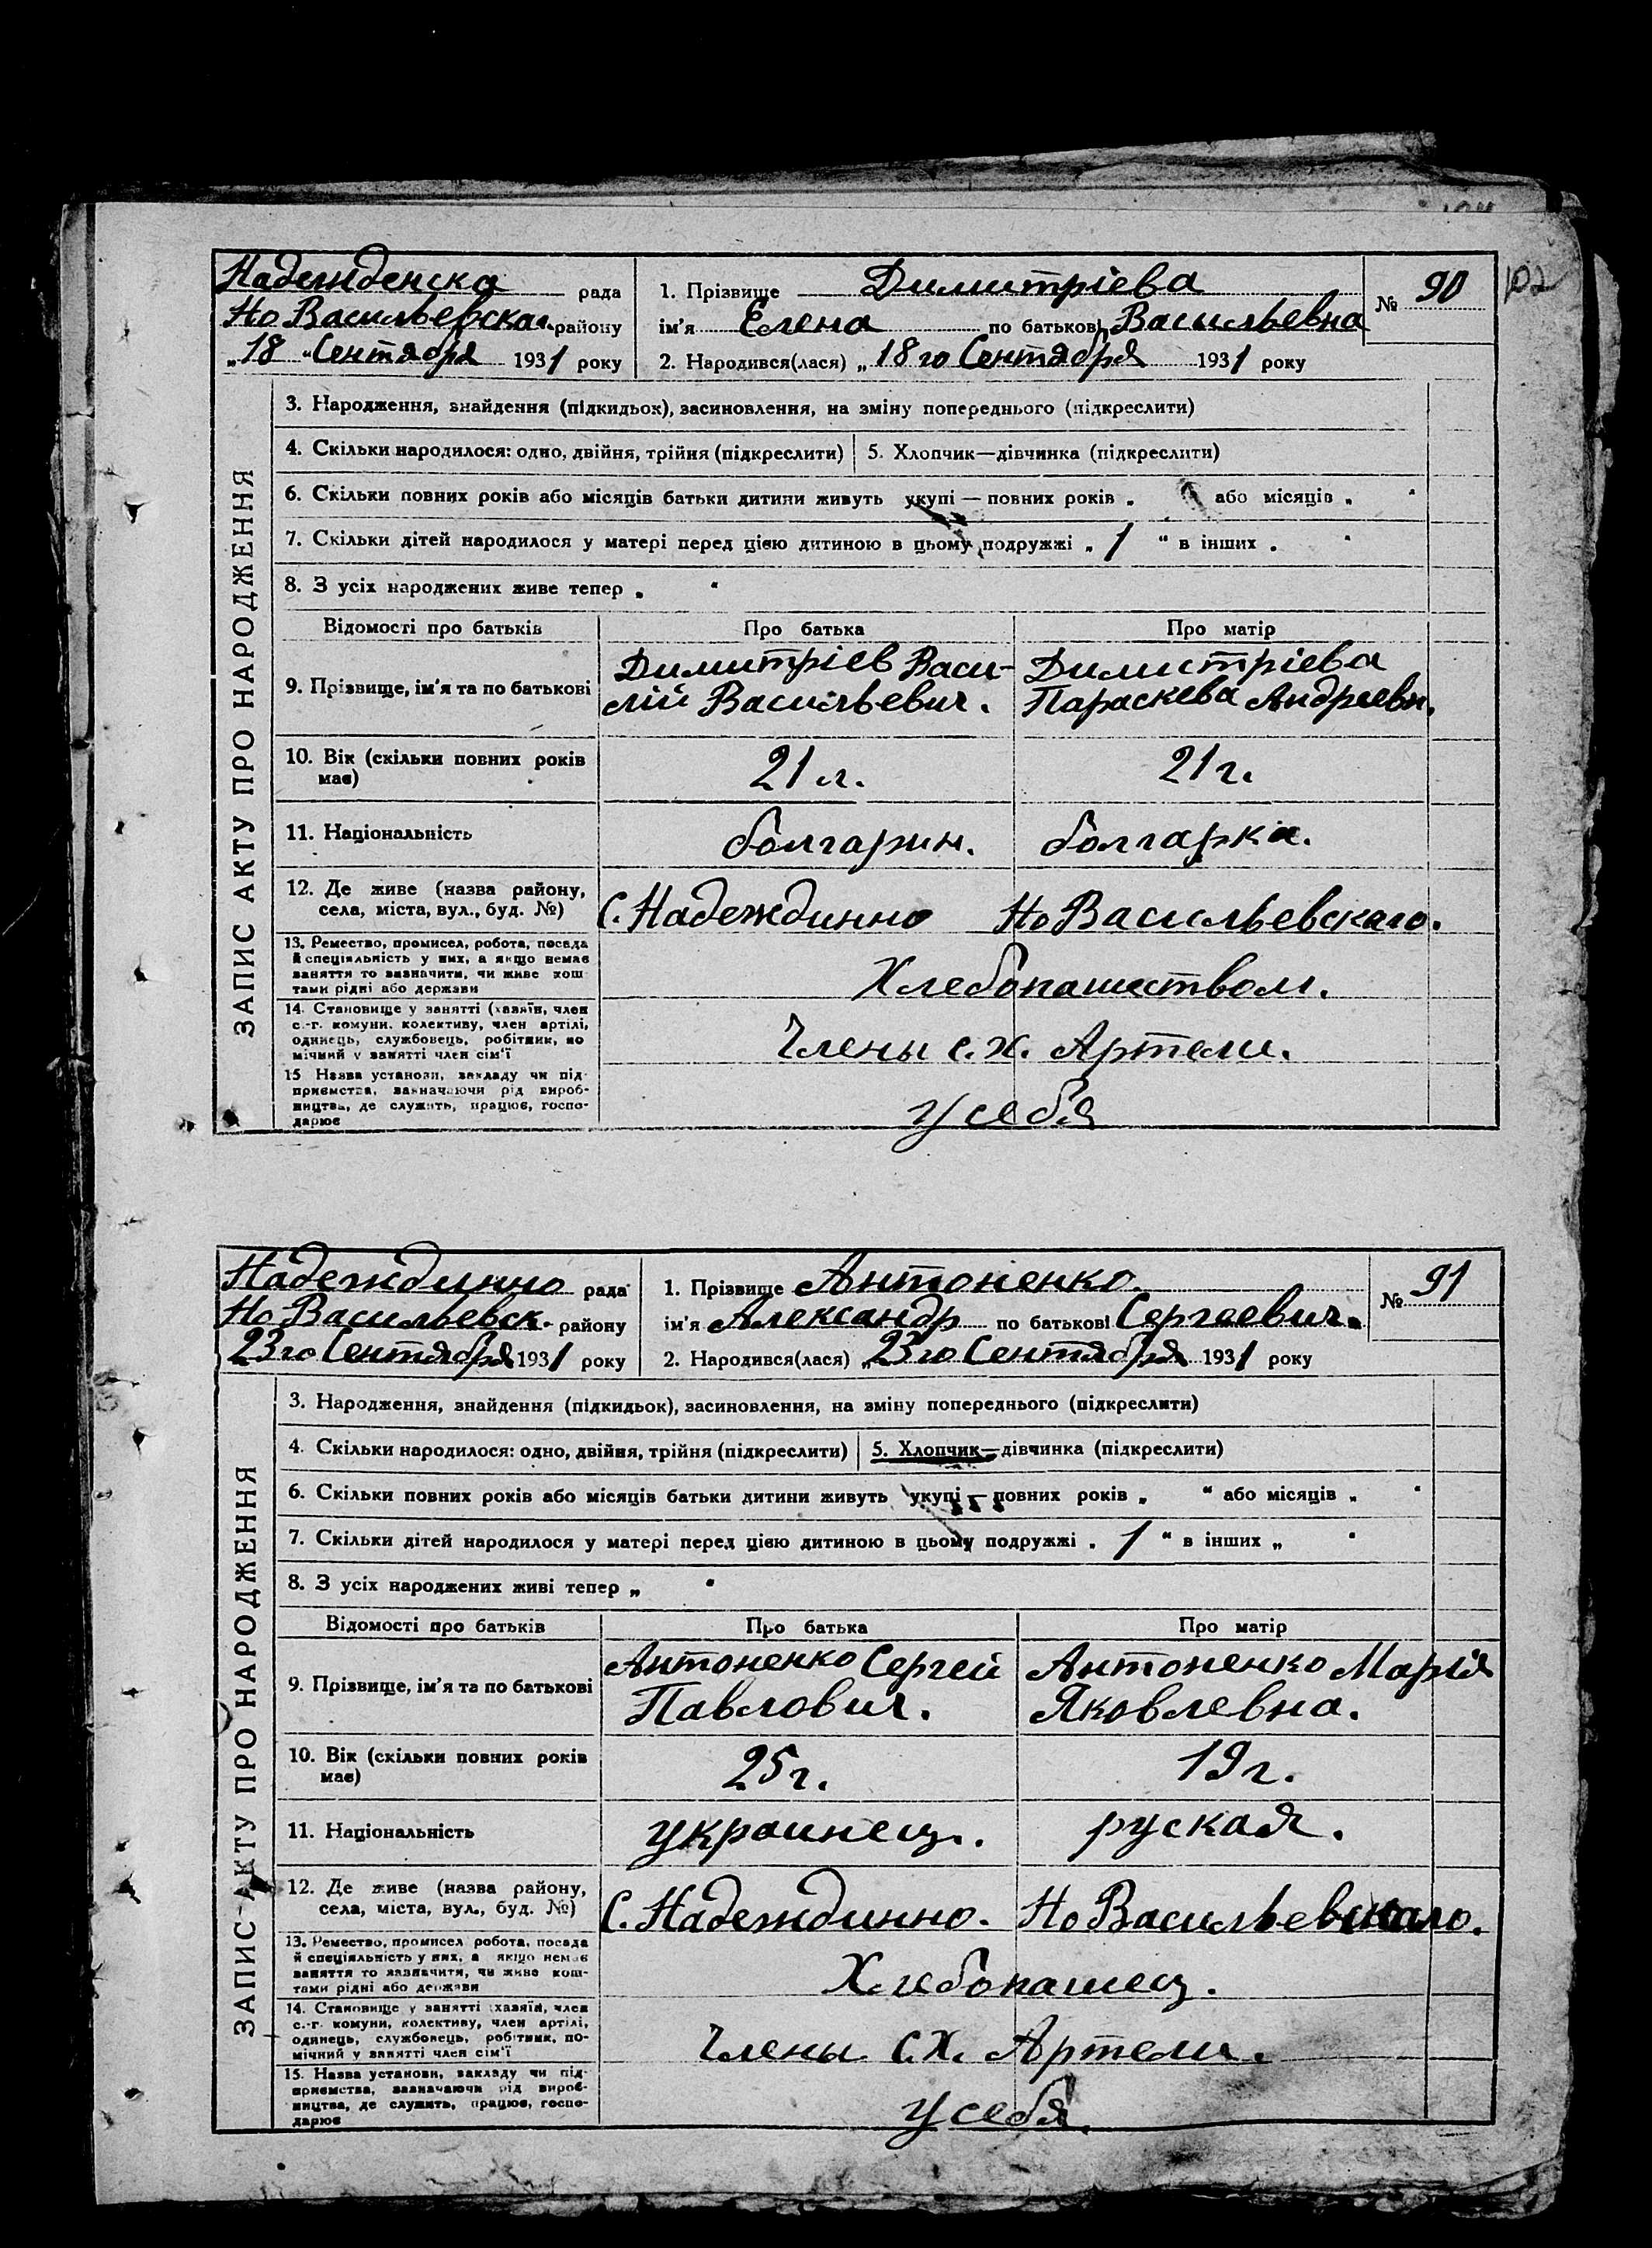 102
Надежденска рада
Но Васильевская району
„18 “ Сентября 1931 року
1. Прізвище Димитріева
ім'я Елена по батькові Васильевна
№ 90
2. Народився(лася) „ 18 го Сентября 1931 року
ЗАПИС АКТУ ПРО НАРОДЖЕННЯ
3. Народження, знайдення (підкидьок), засиновлення, на зміну попереднього (підкреслити)
4. Скільки народилося: одно, двійня, трійня (підкреслити) 5. Хлопчик—дівчинка (підкреслити)
6. Скільки повних років або місяців батьки дитини живуть укупі — повних років „ або місяців „ “
7. Скільки дітей народилося у матері перед цією дитиною в цьому подружжі „ 1 “ в інших „ “
8. З усіх народжених живе тепер „ “
Відомості про батьків Про батька Про матір
9. Прізвище, ім'я та по батькові
Димитріев Васи-
лій Васильевич.
Димитріева
Параскева Андреевн.
10. Вік (скільки повних років
має)
21 л. 21 г.
11. Національність болгарин. болгарка.
12. Де живе (назва району,
села, міста, вул., буд. №)
С. Надеждинно Но Васильевскаго.
13. Ремество, промисел, робота, посада
й спеціяльність у них, а якщо немає
заняття то зазначити, чи живе кош-
тами рідні або держави
Хлебопашеством.
14. Становище у занятті (хазяїн, член
с.-г. комуни, колективу, член артілі,
одинець, службовець, робітник, по
мічний у занятті член сім'ї
Члены с. х. Артели.
15 Назва установи, закладу чи під-
приємства, зазначаючи рід вироб-
ництва, де служить, працює, госпо-
дарює
у себя
Надеждинно рада
Но Васильевск. району
23 го Сентября 1931 року
1. Прізвище Антоненко
ім'я Александр по батькові Сергеевич.
№ 91
2. Народився(лася) „ 23 го Сентября 1931 року
ЗАПИС АКТУ ПРО НАРОДЖЕННЯ
3. Народження, знайдення (підкидьок), засиновлення, на зміну попереднього (підкреслити)
4. Скільки народилося: одно, двійня, трійня (підкреслити) 5. Хлопчик—дівчинка (підкреслити)
6. Скільки повних років або місяців батьки дитини живуть укупі — повних років „ “ або місяців „ “
7. Скільки дітей народилося у матері перед цією дитиною в цьому подружжі „ 1 “ в інших „ “
8. З усіх народжених живі тепер „ “
Відомості про батьків Про батька Про матір
9. Прізвище, ім'я та по батькові
Антоненко Сергей
Павлович.
Антоненко Марія
Яковлевна.
10. Вік (скільки повних років
має)
25 г. 19 г.
11. Національність украинец. руская.
12. Де живе (назва району,
села, міста, вул., буд. №)
С. Надеждинно. Но Васильевскаго.
13. Ремество, промисел робота, посада
й спеціяльність у них, а якщо немає
заняття то зазначити, чи живе кош-
тами рідні або держави
Хлебопашец.
14. Становище у занятті (хазяїн, член
с.-г. комуни, колективу, член артілі,
одинець, службовець, робітник, по-
мічний у занятті член сім'ї
Члены С. Х. Артели.
15. Назва установи, закладу чи під-
приємства, зазначаючи рід вироб-
ництва, де служить, працює, госпо-
дарює
у себя.